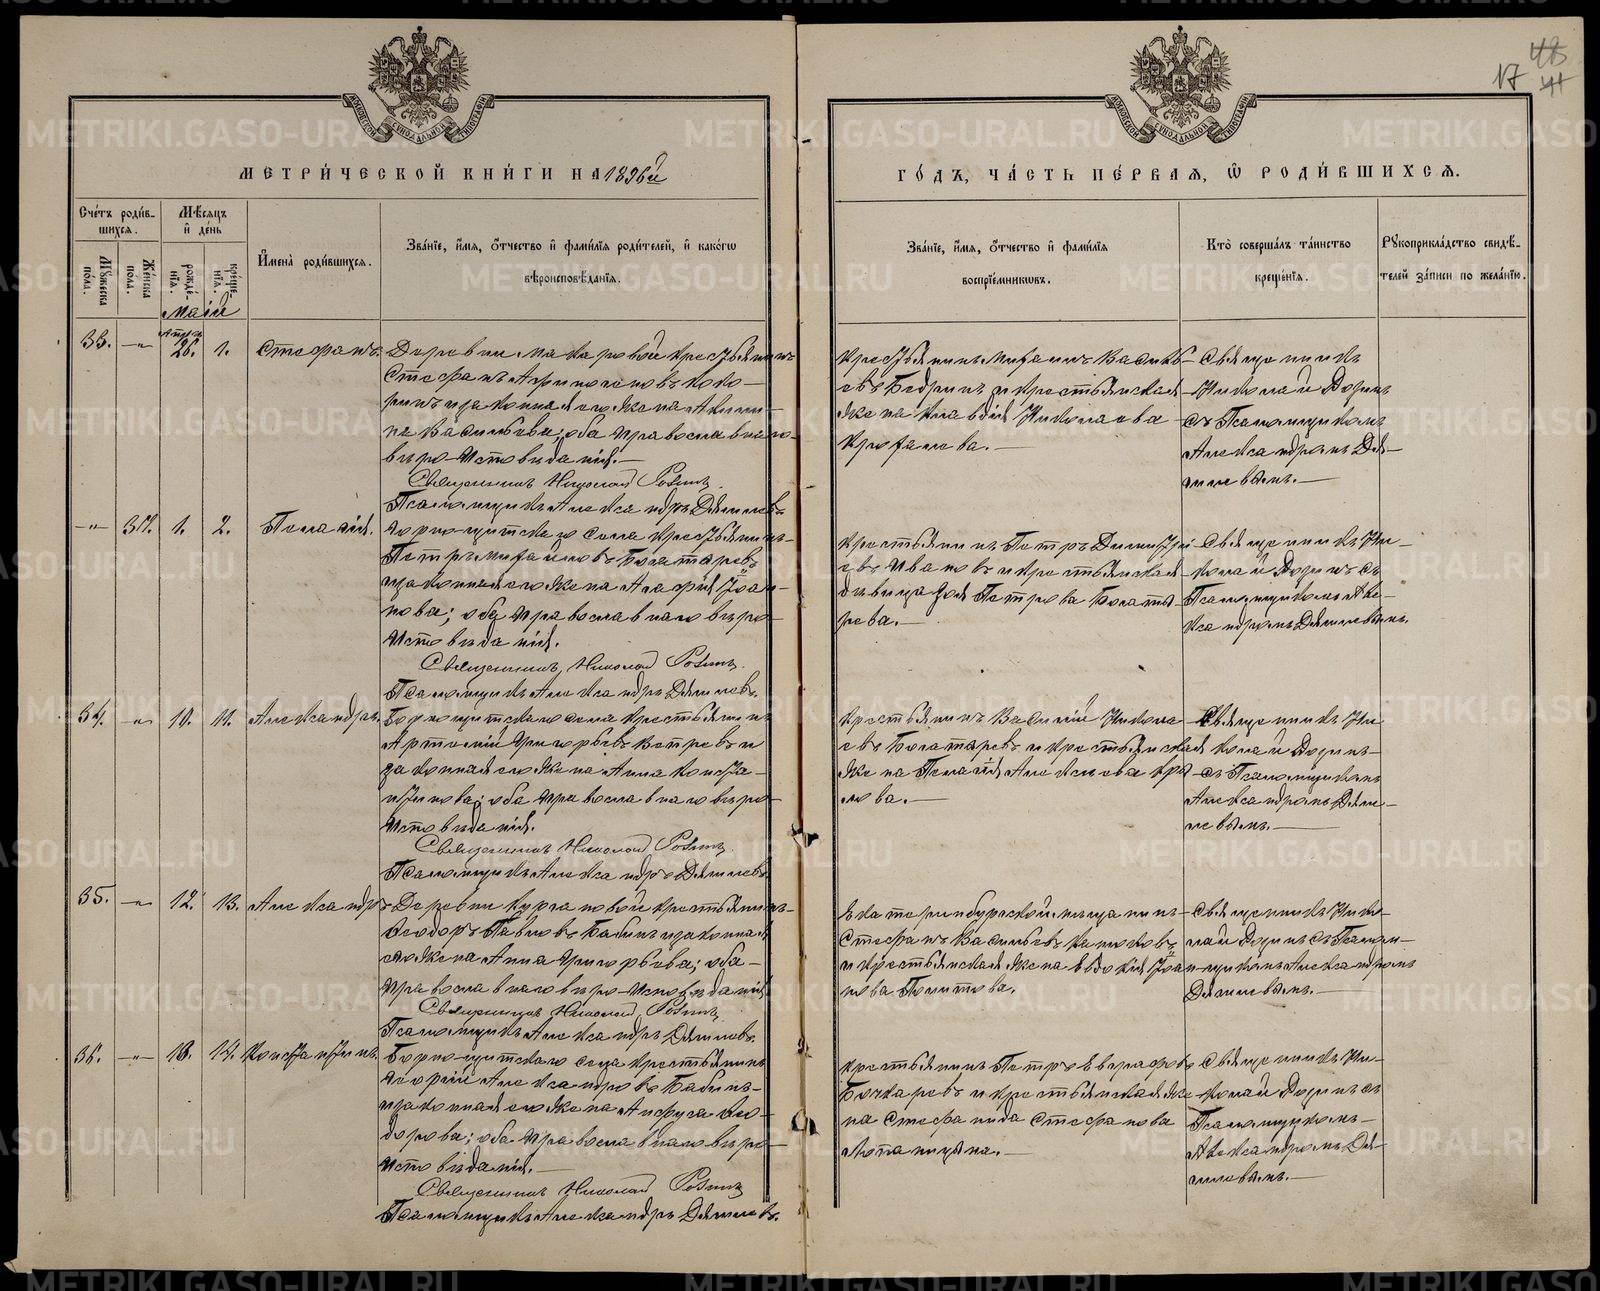 17
МЕТРИ́ЧЕСКОЙ КНИ́ГИ НА 1896й
ГО́ДЪ, ЧА́СТЬ ПЕ́РВАЯ, Ѡ РОДИ́ВШИХСЯ.
Сче́тъ роди́в-
шихся.
Мѣ́сяцъ
и҆ де́нь
Му́жеска по́ла.
Же́нска по́ла.
рожде́нїѧ.
креще́нїѧ.
И҆мена̀ роди́вшихся.
Зва́нїе, и҆́мя, ѻ҆́тчество и҆ фами́лїя роди́телей, и҆ како́гѡ
вѣроисповѣ́данїя.
Зва́нїе, и҆́мя, ѻ҆́тчество и҆ фами́лїя
воспрїе́мникѡвъ.
Кто̀ соверша́лъ та́инство
креще́нїя.
Рꙋкоприкла́дство свидѣ́-
телей за́писи по жела́нїю.
май
33. —„— 26. 1. Стефанъ.
Деревни Макаровой крестьянинъ
Стефанъ
и законная его жена Акили-
на Васильева; оба православнаго
вѣро-исповѣданія.—
Священникъ Николай
Псаломщикъ Александръ
Крестьянинъ Василь-
евъ и крестьянская
жена Клавдія Николаева
Священникъ
Николай
съ Псаломщикомъ
Александромъ
—„— 1. 2. Пелагія.
Горно-щитскаго села крестьянинъ
Петръ Богатыревъ
и законная его жена Агафія Іоан-
нова; оба православнаго вѣро-
исповѣданія.
Священникъ Николай
Псаломщикъ Александръ
Крестьянинъ Петръ Димитрі-
евъ Ивановъ и крестьянская
дѣвица Зоя Петрова Богаты-
рева.—
Священникъ Ни-
колай съ
Псаломщикомъ Але-
ксандромъ
34. —„— 10. 11. Александръ.
Горнощитскаго села крестьянинъ
Артемій Григорьевъ и
законная его жена Анна Конста-
нтинова; оба православнаго вѣро-
исповѣданія.
Священникъ Николай
Псаломщикъ Александръ
Крестьянинъ Василій Никола-
евъ Богатыревъ и крестьянская
жена Пелагія Алексѣева
Священникъ Ни
колай
съ Псаломщикомъ
Александромъ
35. —„— 12. 13. Александръ
Деревни Кургановой крестьянинъ
Ѳеодоръ Павловъ Бабинъ и законная
его жена Анна Григорьева; оба
православнаго вѣро-исповѣданія
Священникъ Николай
Псаломщикъ Александръ
Екатеринбургской мѣщанинъ
Стефанъ Васильевъ
и крестьянская жена Евдокія Іоан-
нова
Священникъ Нико-
лай съ Псалом-
щикомъ Александромъ
36. —„— 13. 14. Константинъ.
Горно-щитскаго села крестьянинъ
Георгій Александровъ Бабинъ
и законная его жена Анфуса Ѳео-
дорова; оба православнаго вѣро-
исповѣданія.—
Священникъ Николай
Псаломщикъ Александръ
Крестьянинъ Петръ Евграфовъ
Бочкаревъ и крестьянская же-
на Стефанида Стефанова
Священникъ Ни-
колай съ
Псаломщикомъ
Александромъ
METRIKI.GASO-URAL.RU